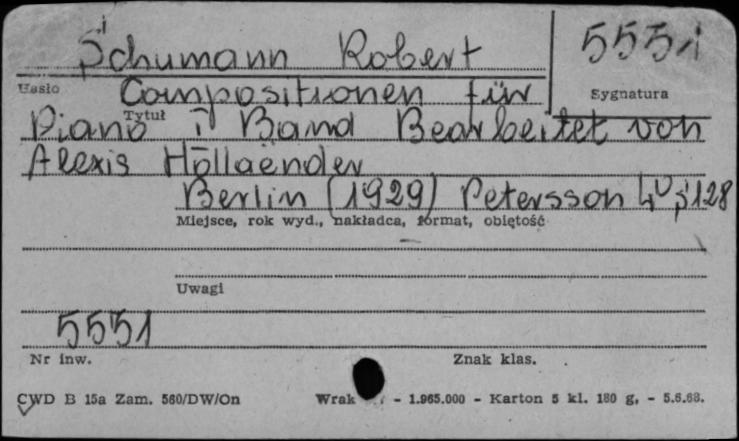 Schumann Robert 5551
Hasło Compositionen für Sygnatura
Tytuł
Piano I Band Bearbeitet von
Alexis Höllaender
Berlin (1929) Petersson 4° s 128
Miejsce, rok wyd., nakładca, format, objętość
Uwagi
5551
Nr inw. Znak klas.
CWD B 15a Zam. 560/DW/On Wrak - 1.965.000 - Karton 5 kl. 180 g, - 5.6.68.